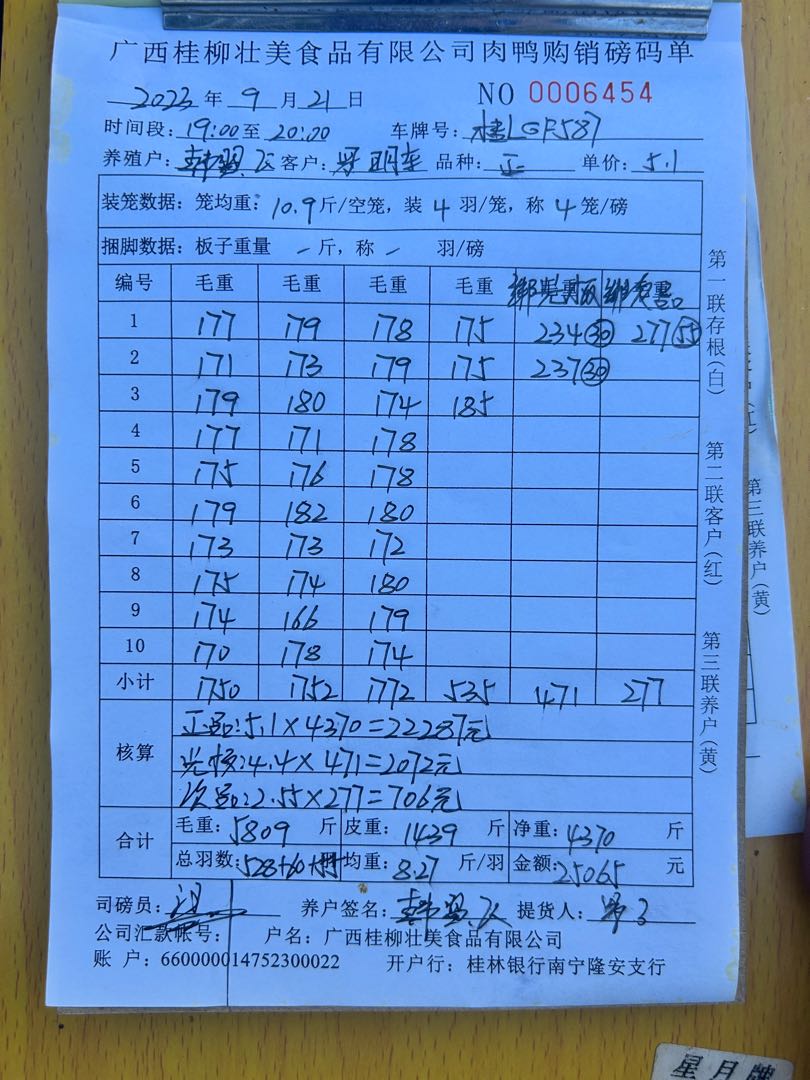 广西桂柳壮美食品有限公司肉鸭购销磅码单
2023年 9 月 21 日 NO 0006454
时间段：19:00至 20:00 车牌号：桂LGF587
养殖户：韩 飞 客户： 明 品种：正 单价：5.1
装笼数据：笼均重：10.9斤/空笼，装 4 羽/笼，称 4 笼/磅
捆脚数据：板子重量 — 斤，称 — 羽/磅
编号 毛重 毛重 毛重 毛重
1 177 179 178 175 234㉚ 277(55)
2 171 173 179 175 237㉚
3 179 180 174 185
4 177 171 178
5 175 176 178
6 179 182 180
7 173 173 172
8 175 174 180
9 174 166 179
10 170 178 174
小计 1750 1752 1772 535 471 277
核算
正品：5.1×4370=22287元
光 ：4.4×471=2072元
次品：2.55×277=706元
合计
毛重：5809 斤 皮重：1439 斤 净重：4370 斤
总羽数：528+60+ 均重：8.27 斤/羽 金额：25065 元
司磅员： 养户签名：韩 飞 提货人：
公司汇款帐号： 户名：广西桂柳壮美食品有限公司
账 户：660000014752300022 开户行：桂林银行南宁隆安支行
第一联存根（白）
第二联客户（红）
第三联养户（黄）
第三联养户（黄）
星月牌